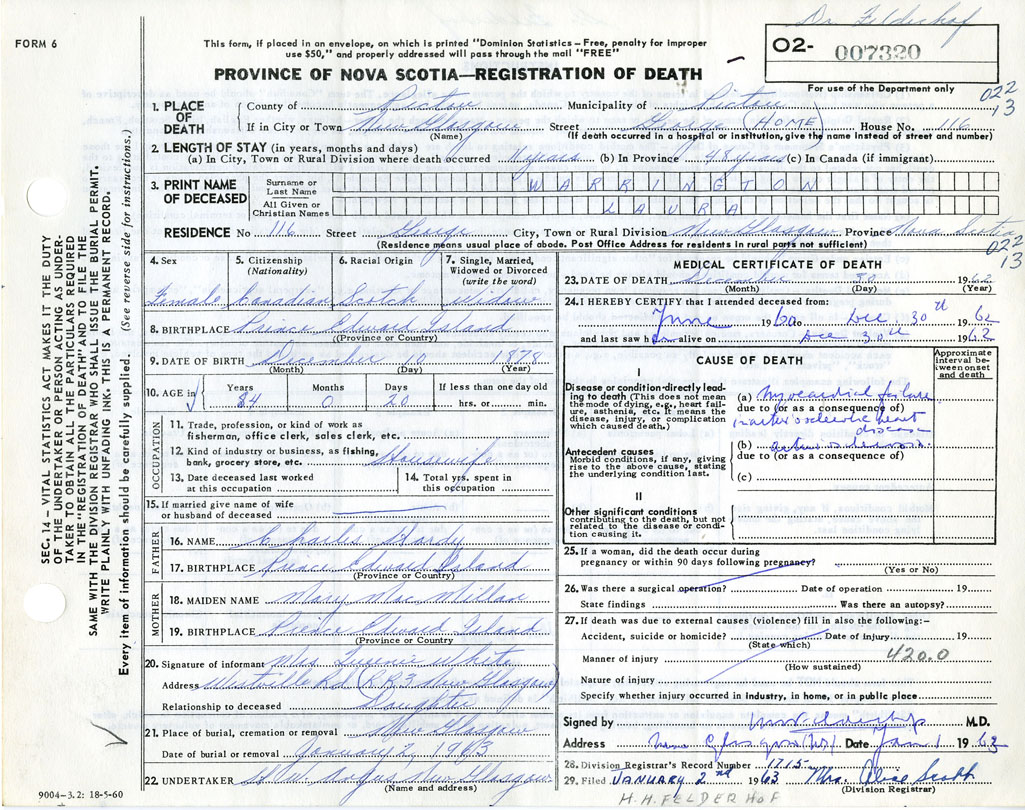 Dr. Felderhof
FORM 6
This form, if placed in an envelope, on which is printed "Dominion Statistics – Free, penalty for Improper
use $50," and properly addressed will pass through the mail "FREE"
O2- 007330
PROVINCE OF NOVA SCOTIA—REGISTRATION OF DEATH
For use of the Department only
022
13
1. PLACE OF DEATH
County of Pictou Municipality of Pictou
If in City or Town New Glasgow Street George (HOME) House No. 116
(Name) (If death occurred in a hospital or institution, give the name instead of street and number)
2. LENGTH OF STAY (in years, months and days)
(a) In City, Town or Rural Division where death occurred 11 years (b) In Province 48 years (c) In Canada (if immigrant)
3. PRINT NAME OF DECEASED
Surname or Last Name WARRINGTON
All Given or Christian Names LAURA
RESIDENCE No 116 Street George City, Town or Rural Division New Glasgow Province Nova Scotia
(Residence means usual place of abode. Post Office Address for residents in rural parts not sufficient)
022
13
4. Sex Female
5. Citizenship (Nationality) Canadian
6. Racial Origin Scotch
7. Single, Married, Widowed or Divorced (write the word) Widow
8. BIRTHPLACE Prince Edward Island
(Province or Country)
9. DATE OF BIRTH December 10 1878
(Month) (Day) (Year)
10. AGE in Years Months Days If less than one day old
84 0 20 hrs. or min.
OCCUPATION
11. Trade, profession, or kind of work as
fisherman, office clerk, sales clerk, etc.
12. Kind of industry or business, as fishing,
bank, grocery store, etc. Housewife
13. Date deceased last worked
at this occupation
14. Total yrs. spent in
this occupation
15. If married give name of wife
or husband of deceased
FATHER
16. NAME Charles Hardy
17. BIRTHPLACE Prince Edward Island
(Province or Country)
MOTHER
18. MAIDEN NAME Mary MacMillan
19. BIRTHPLACE Prince Edward Island
(Province or Country
20. Signature of informant Mrs Eugenie White
Address Westville Rd (R.R.3 New Glasgow)
Relationship to deceased Daughter
21. Place of burial, cremation or removal New Glasgow
Date of burial or removal January 2, 1963
22. UNDERTAKER New Glasgow
(Name and address)
9004–3.2: 18-5-60
MEDICAL CERTIFICATE OF DEATH
23. DATE OF DEATH December 30 1962
(Month) (Day) (Year)
24. I HEREBY CERTIFY that I attended deceased from:
June 1960 to Dec 30th 1962
and last saw h alive on Dec 30th 1962
CAUSE OF DEATH
Approximate interval between onset and death
I
Disease or condition directly leading to death (This does not mean
the mode of dying, e.g., heart failure, asthenia, etc. It means the
disease, injury, or complication
which caused death.)
(a) Myocardial failure
due to (or as a consequence of)
arteriosclerotic heart
disease
Antecedent causes
Morbid conditions, if any, giving
rise to the above cause, stating
the underlying condition last.
(b) arteriosclerosis
due to (or as a consequence of)
(c)
II
Other significant conditions
contributing to the death, but not
related to the disease or condition causing it.
25. If a woman, did the death occur during
pregnancy or within 90 days following pregnancy?
(Yes or No)
26. Was there a surgical operation? Date of operation 19
State findings Was there an autopsy?
27. If death was due to external causes (violence) fill in also the following:–
Accident, suicide or homicide? Date of injury 19
(State which)
Manner of injury 420.0
(How sustained)
Nature of injury
Specify whether injury occurred in industry, in home, or in public place
Signed by M.D.
Address New Glasgow (NS) Date Jan 1 1963
28. Division Registrar's Record Number 1715
29. Filed JANUARY 2nd 1963 Mrs. Alice Scott
(Division Registrar)
H.H. FELDERHOF
SEC. 14 – VITAL STATISTICS ACT MAKES IT THE DUTY
OF THE UNDERTAKER OR PERSON ACTING AS UNDER-
TAKER TO OBTAIN ALL THE PARTICULARS REQUIRED
IN THE "REGISTRATION OF DEATH" AND TO FILE THE
SAME WITH THE DIVISION REGISTRAR WHO SHALL ISSUE THE BURIAL PERMIT.
WRITE PLAINLY WITH UNFADING INK. THIS IS A PERMANENT RECORD.
Every item of information should be carefully supplied. (See reverse side for instructions.)